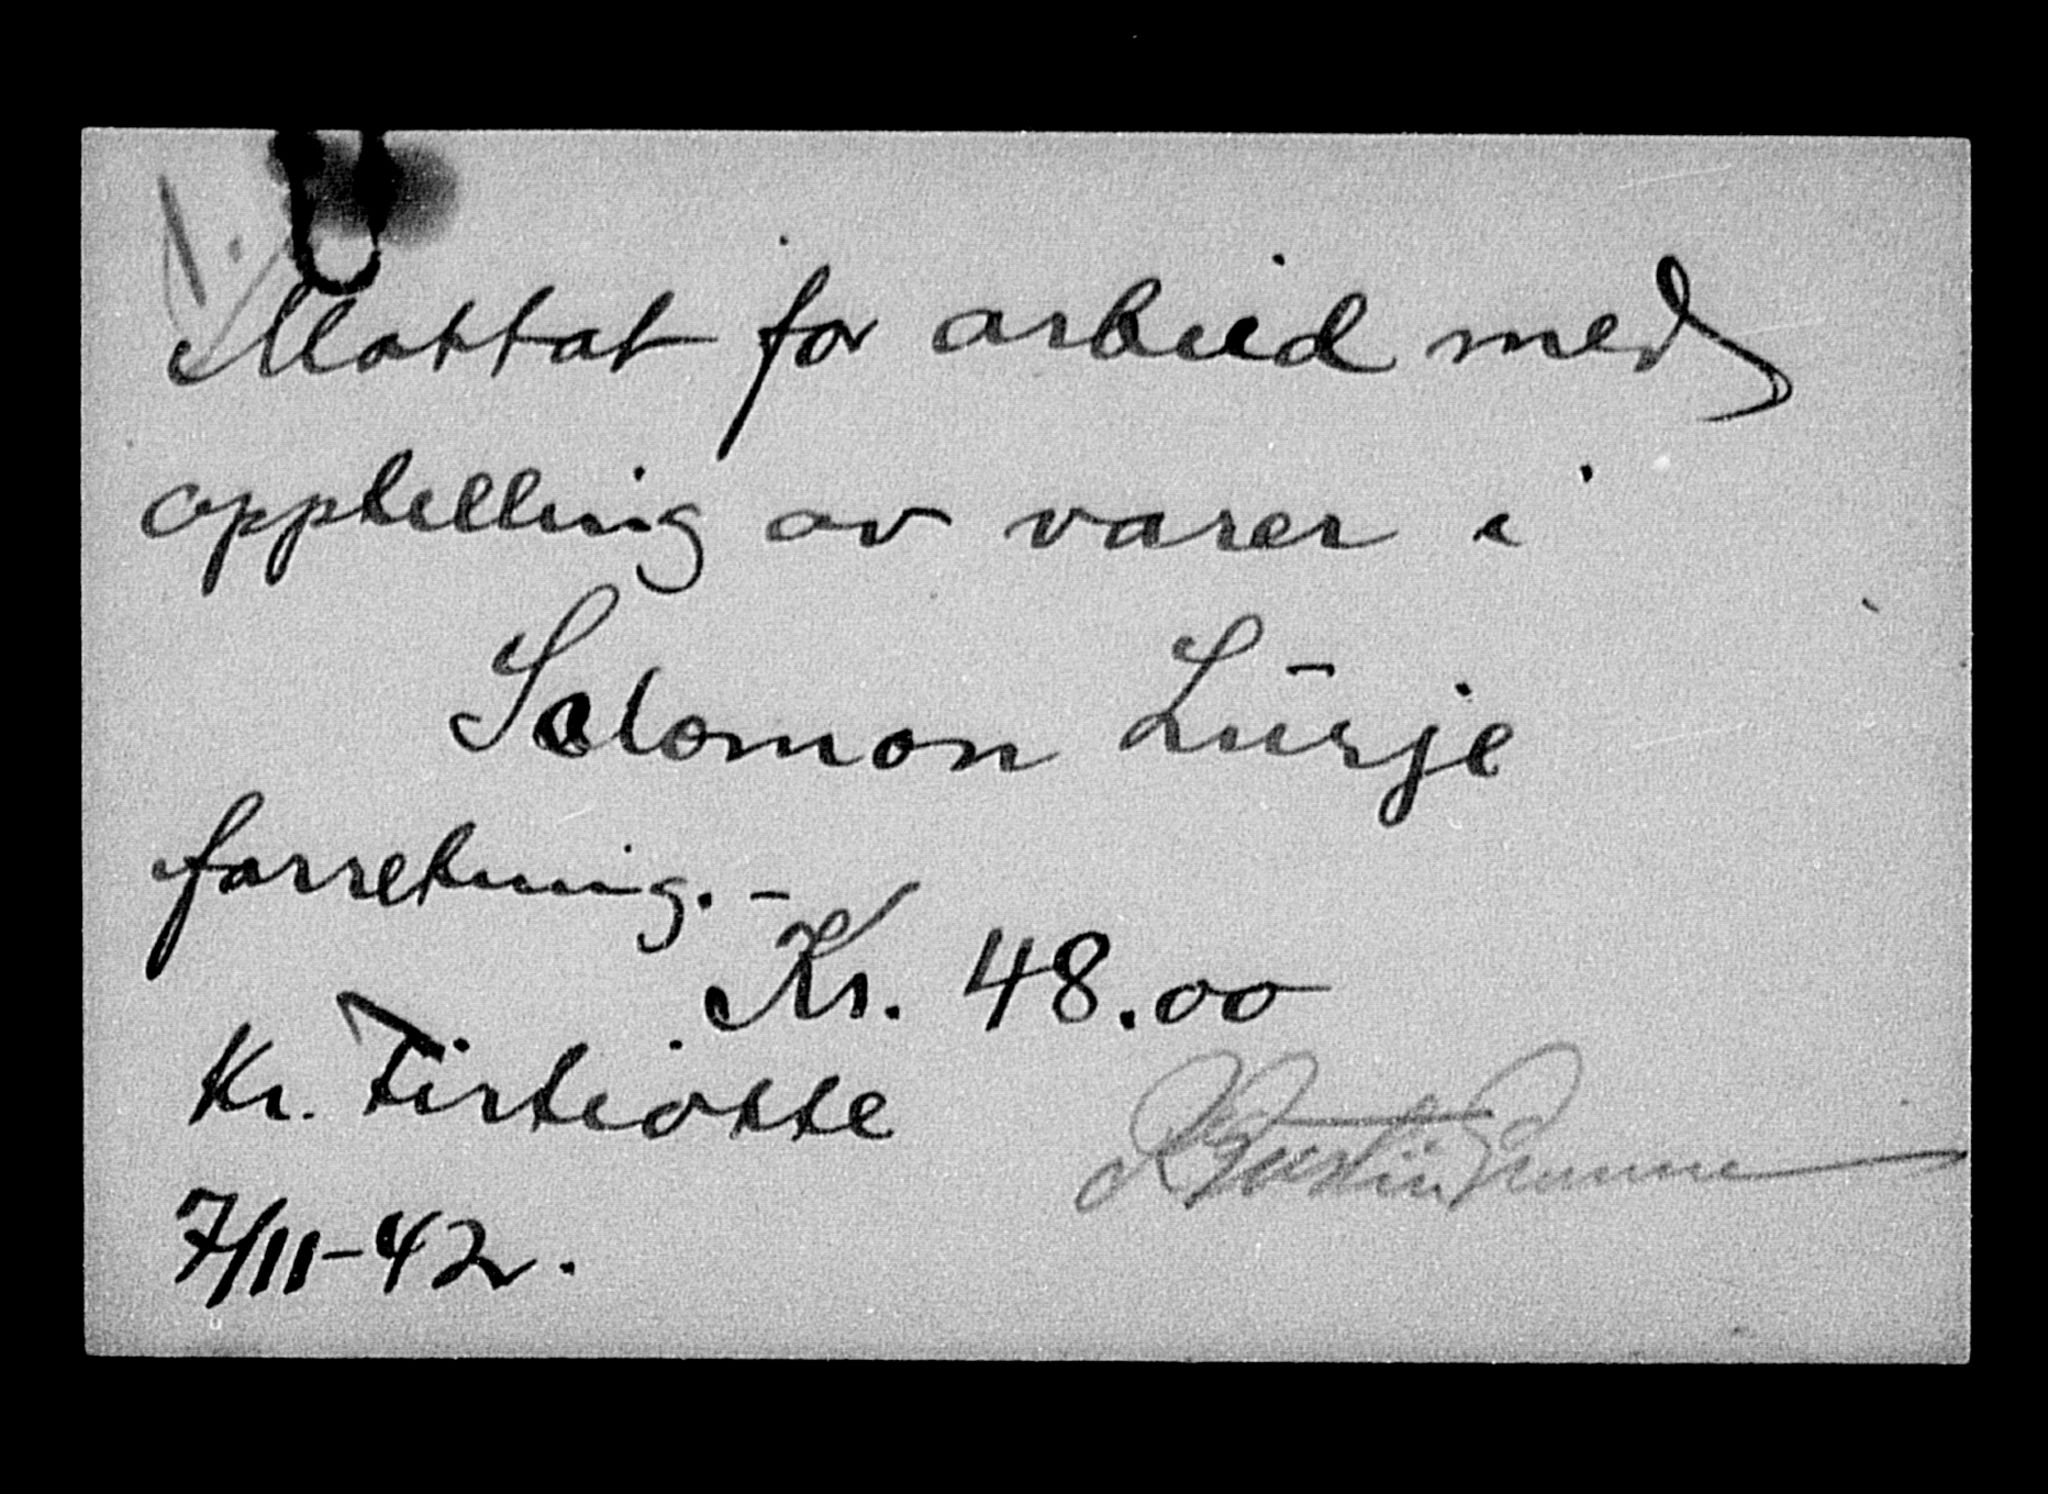 1.
Mottat for arbeid med
opptelling av varer i
Salomon Lūrje
forretning. -
Kr. 48.00
Kr. Førtiøtte
7/11-42.